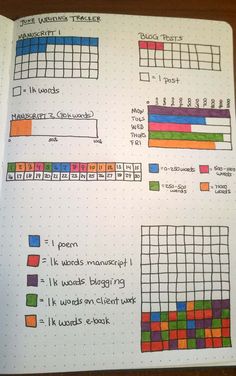 JUNE WRITING TRACKER
MANUSCRIPT 1
= 1k words
BLOG POSTS
= 1 post
MANUSCRIPT 2 (30k WORDS)
MON
TUES
WED
THURS
FRI
1 2 3 4 5 6 7 8 9 10 11 12 13 14 15
16 17 18 19 20 21 22 23 24 25 26 27 28 29 30
= 0-250 words
= 250-500 words
= 1 poem
= 1k words manuscript 1
= 1k words blogging
= 1k words on client work
= 1k words e-book